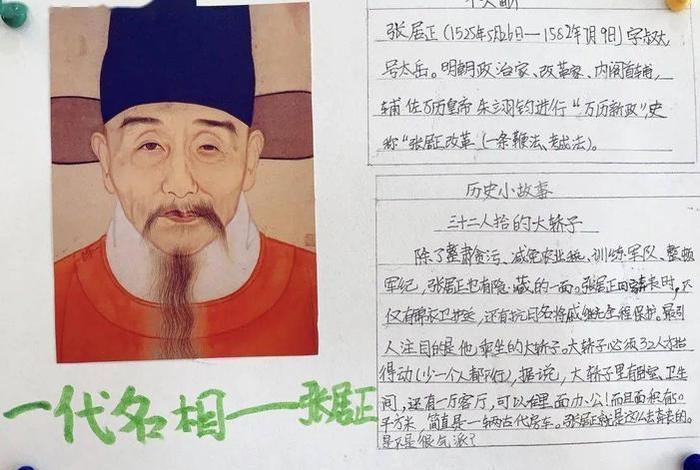 个人简介
张居正(1525年5月26日—1582年7月9日)字叔大
号太岳。明朝政治家、改革家、内阁首辅,
辅佐万历皇帝朱翊钧进行"万历新政",史
称"张居正改革(一条鞭法、考成法)。
历史小故事
三十二人抬的大轿子
除了整肃贪污、减免农业税、训练军队、整顿
军纪,张居正也有隐藏的一面。张居正回家时,不
仅有锦衣卫护送,还有抗日名将戚继光全程保护。最引
人注目的是他乘坐的大轿子。大轿子必须32人才抬
得动(少一个人都不行),据说,大轿子里有卧室、卫生
间,还有一厅客厅,可以在里面办公!而且面积有50
平方米,简直是一辆古代房车。张居正就是这么去奔丧的。
是不是很气派?
一代名相——张居正